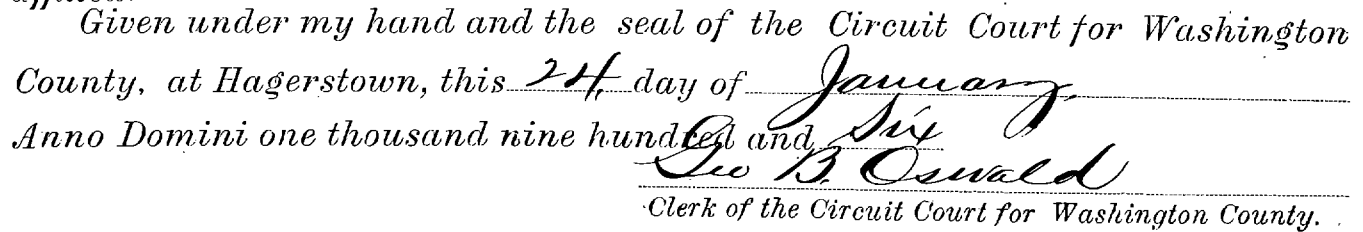 Given under my hand and the seal of the Circuit Court for Washington
County, at Hagerstown, this 24, day of January,
Anno Domini one thousand nine hundred and Six
Geo B. Oswald
Clerk of the Circuit Court for Washington County.